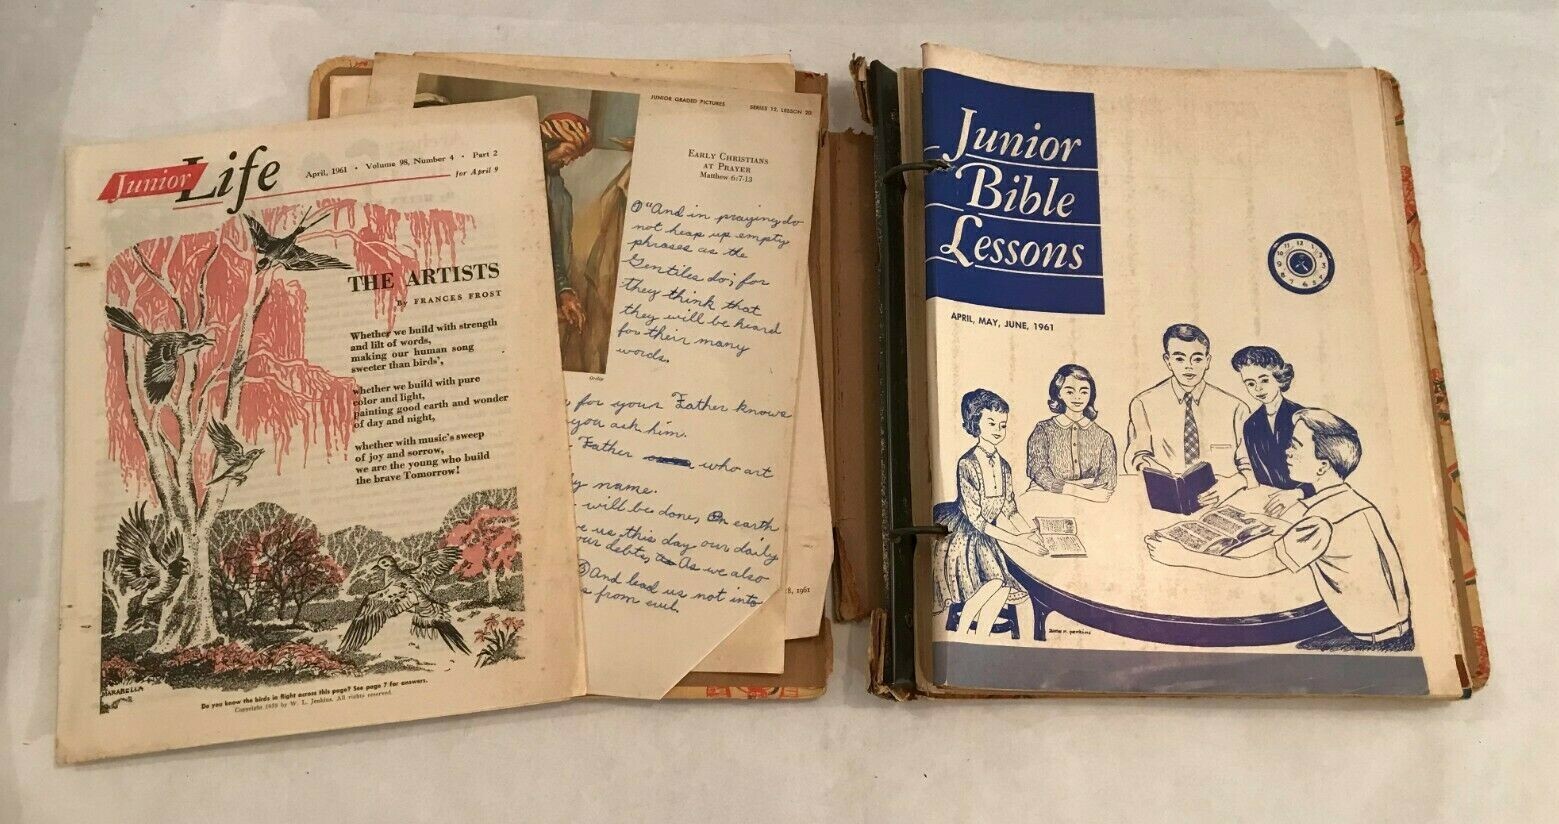 Junior Life
April, 1961 • Volume 98, Number 4 • Part 2
for April 9
THE ARTISTS
By FRANCES FROST
Whether we build with strength
and lilt of words,
making our human song
sweeter than birds',
whether we build with pure
color and light,
painting good earth and wonder
of day and night,
whether with music's sweep
of joy and sorrow,
we are the young who build
the brave Tomorrow!
MARABELLA
Do you know the birds in flight across this page? See page 7 for answers.
Copyright 1959 by W. L. Jenkins. All rights reserved.
JUNIOR GRADED PICTURES SERIES 12, LESSON 20
EARLY CHRISTIANS
AT PRAYER
Matthew 6:7-13
"And in praying do
not heap up empty
phrases as the
Gentiles do; for
they think that
they will be heard
for their many
words.
for your Father knows
you ask him.
Father who art
name.
will be done, On earth
us this day our daily
our debts, As we also
And lead us not into
from evil.
8, 1961
Junior
Bible
Lessons
APRIL, MAY, JUNE, 1961
12 1 2 3 4 5 6 7 8 9 10 11